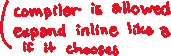 (compiler is allowed
expand inline like a
if it chooses